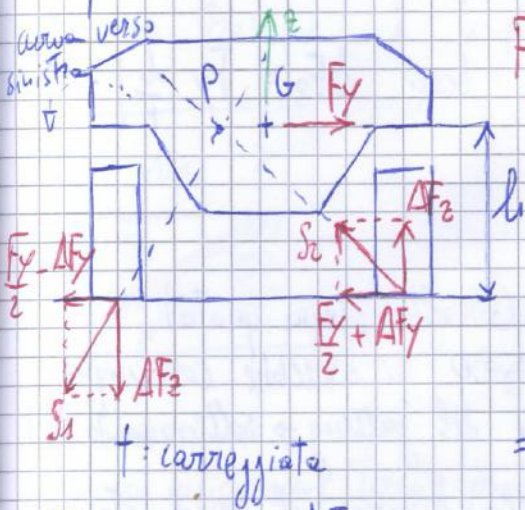 curva verso
sinistra
z
P
G
Fy
ΔFz
S2
h
Fy/2 - ΔFy
Fy/2 + ΔFy
ΔFz
S1
t: carreggiata
=